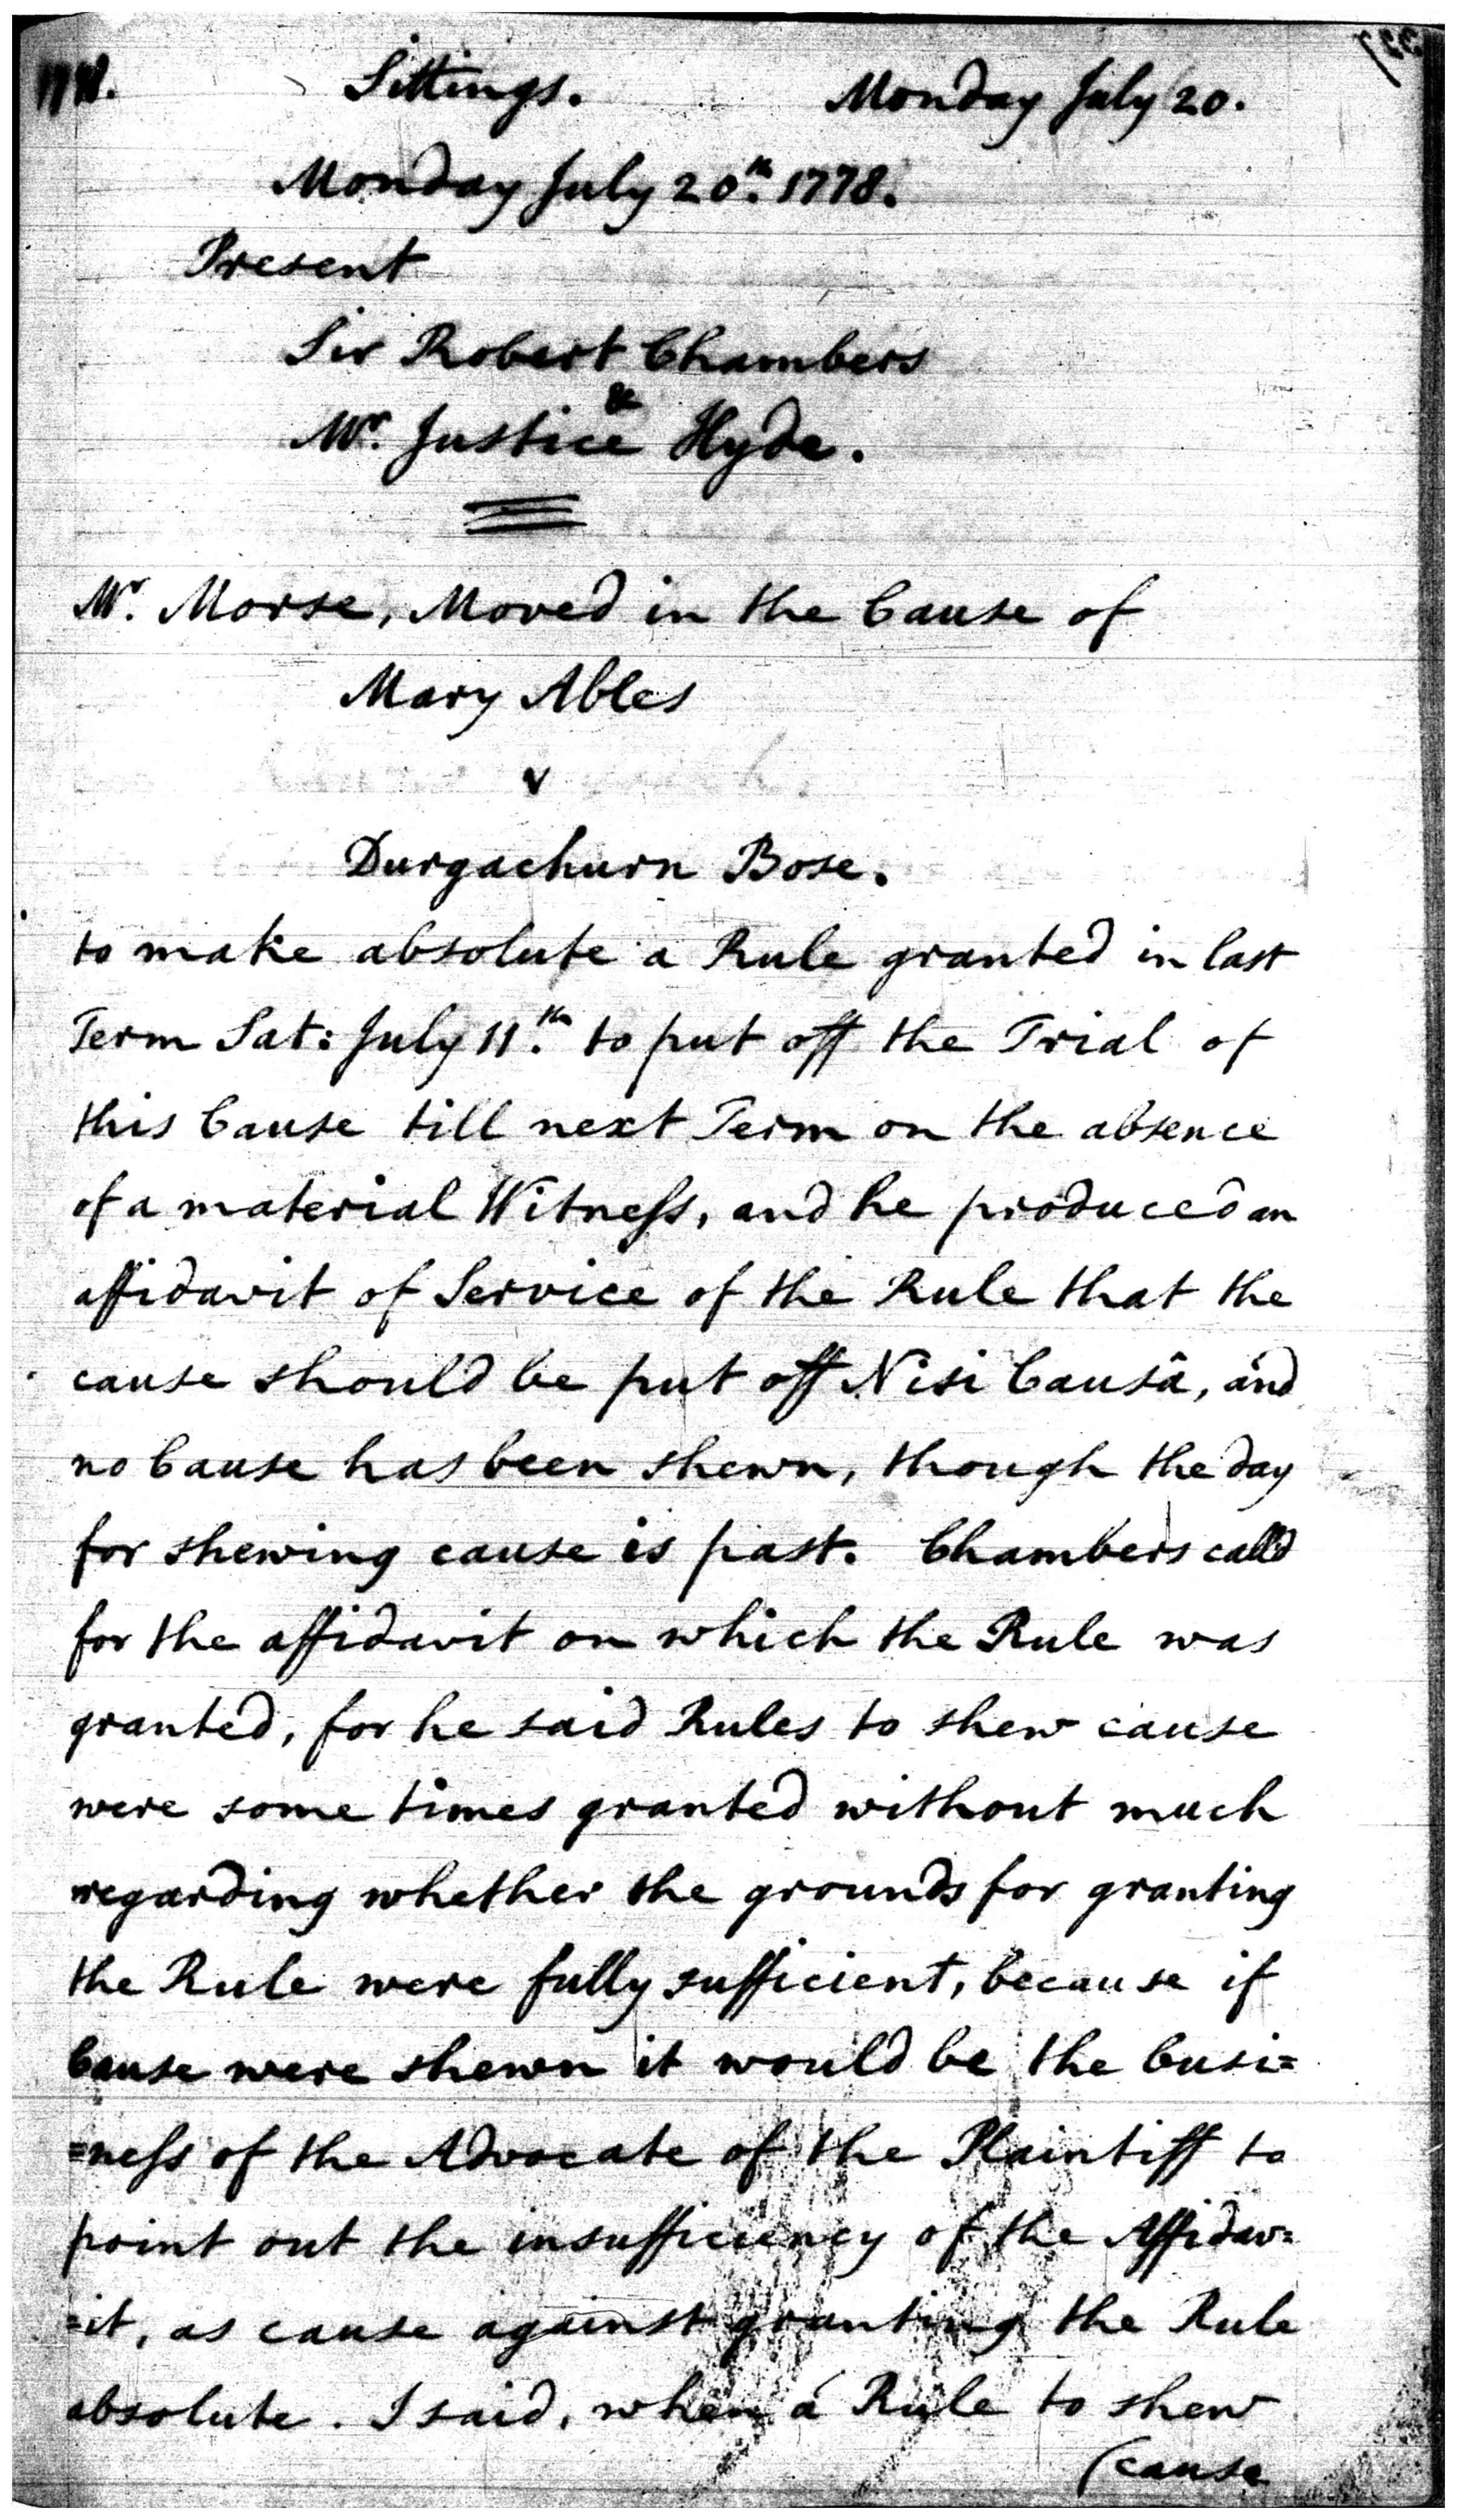 1778. Sittings. Monday July 20.
Monday July 20th. 1778.
Present
Sir Robert Chambers
&
Mr. Justice Hyde.
Mr. Morse, Moved in the Cause of
Mary Ables
v
Durgachurn Bose.
to make absolute a Rule granted in last
Term Sat: July 11th. to put off the Trial of
this Cause till next Term on the absence
of a material Witneſs, and he produced an
affidavit of Service of the Rule that the
cause should be put off Nisi Causâ, and
no Cause has been shewn, though the day
for shewing cause is past. Chambers calld
for the affidavit on which the Rule was
granted, for he said Rules to shew cause
were some times granted without much
regarding whether the grounds for granting
the Rule were fully sufficient, because if
Cause were shewn it would be the busi=
=neſs of the Advocate of the Plaintiff to
point out the insufficiency of the Affidav=
=it, as cause against granting the Rule
absolute. I said, when a Rule to shew
(cause